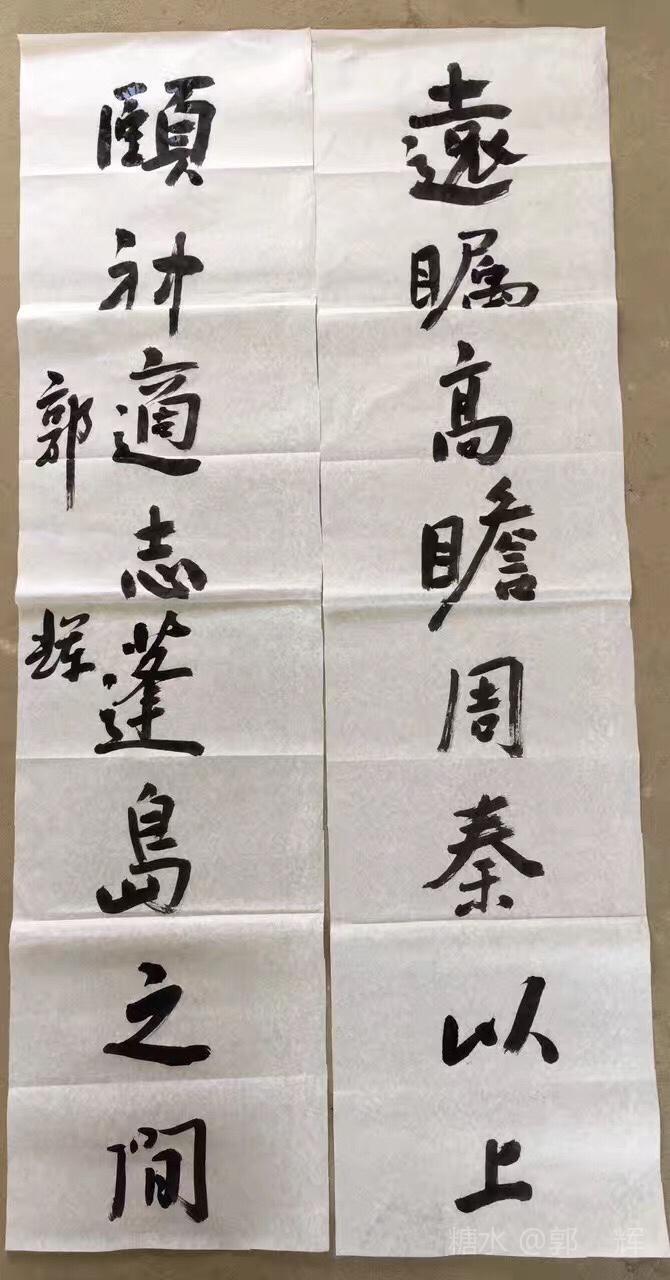 遠瞩高瞻周秦以上
頤神適志蓬島之間
郭輝
糖水 @郭 辉